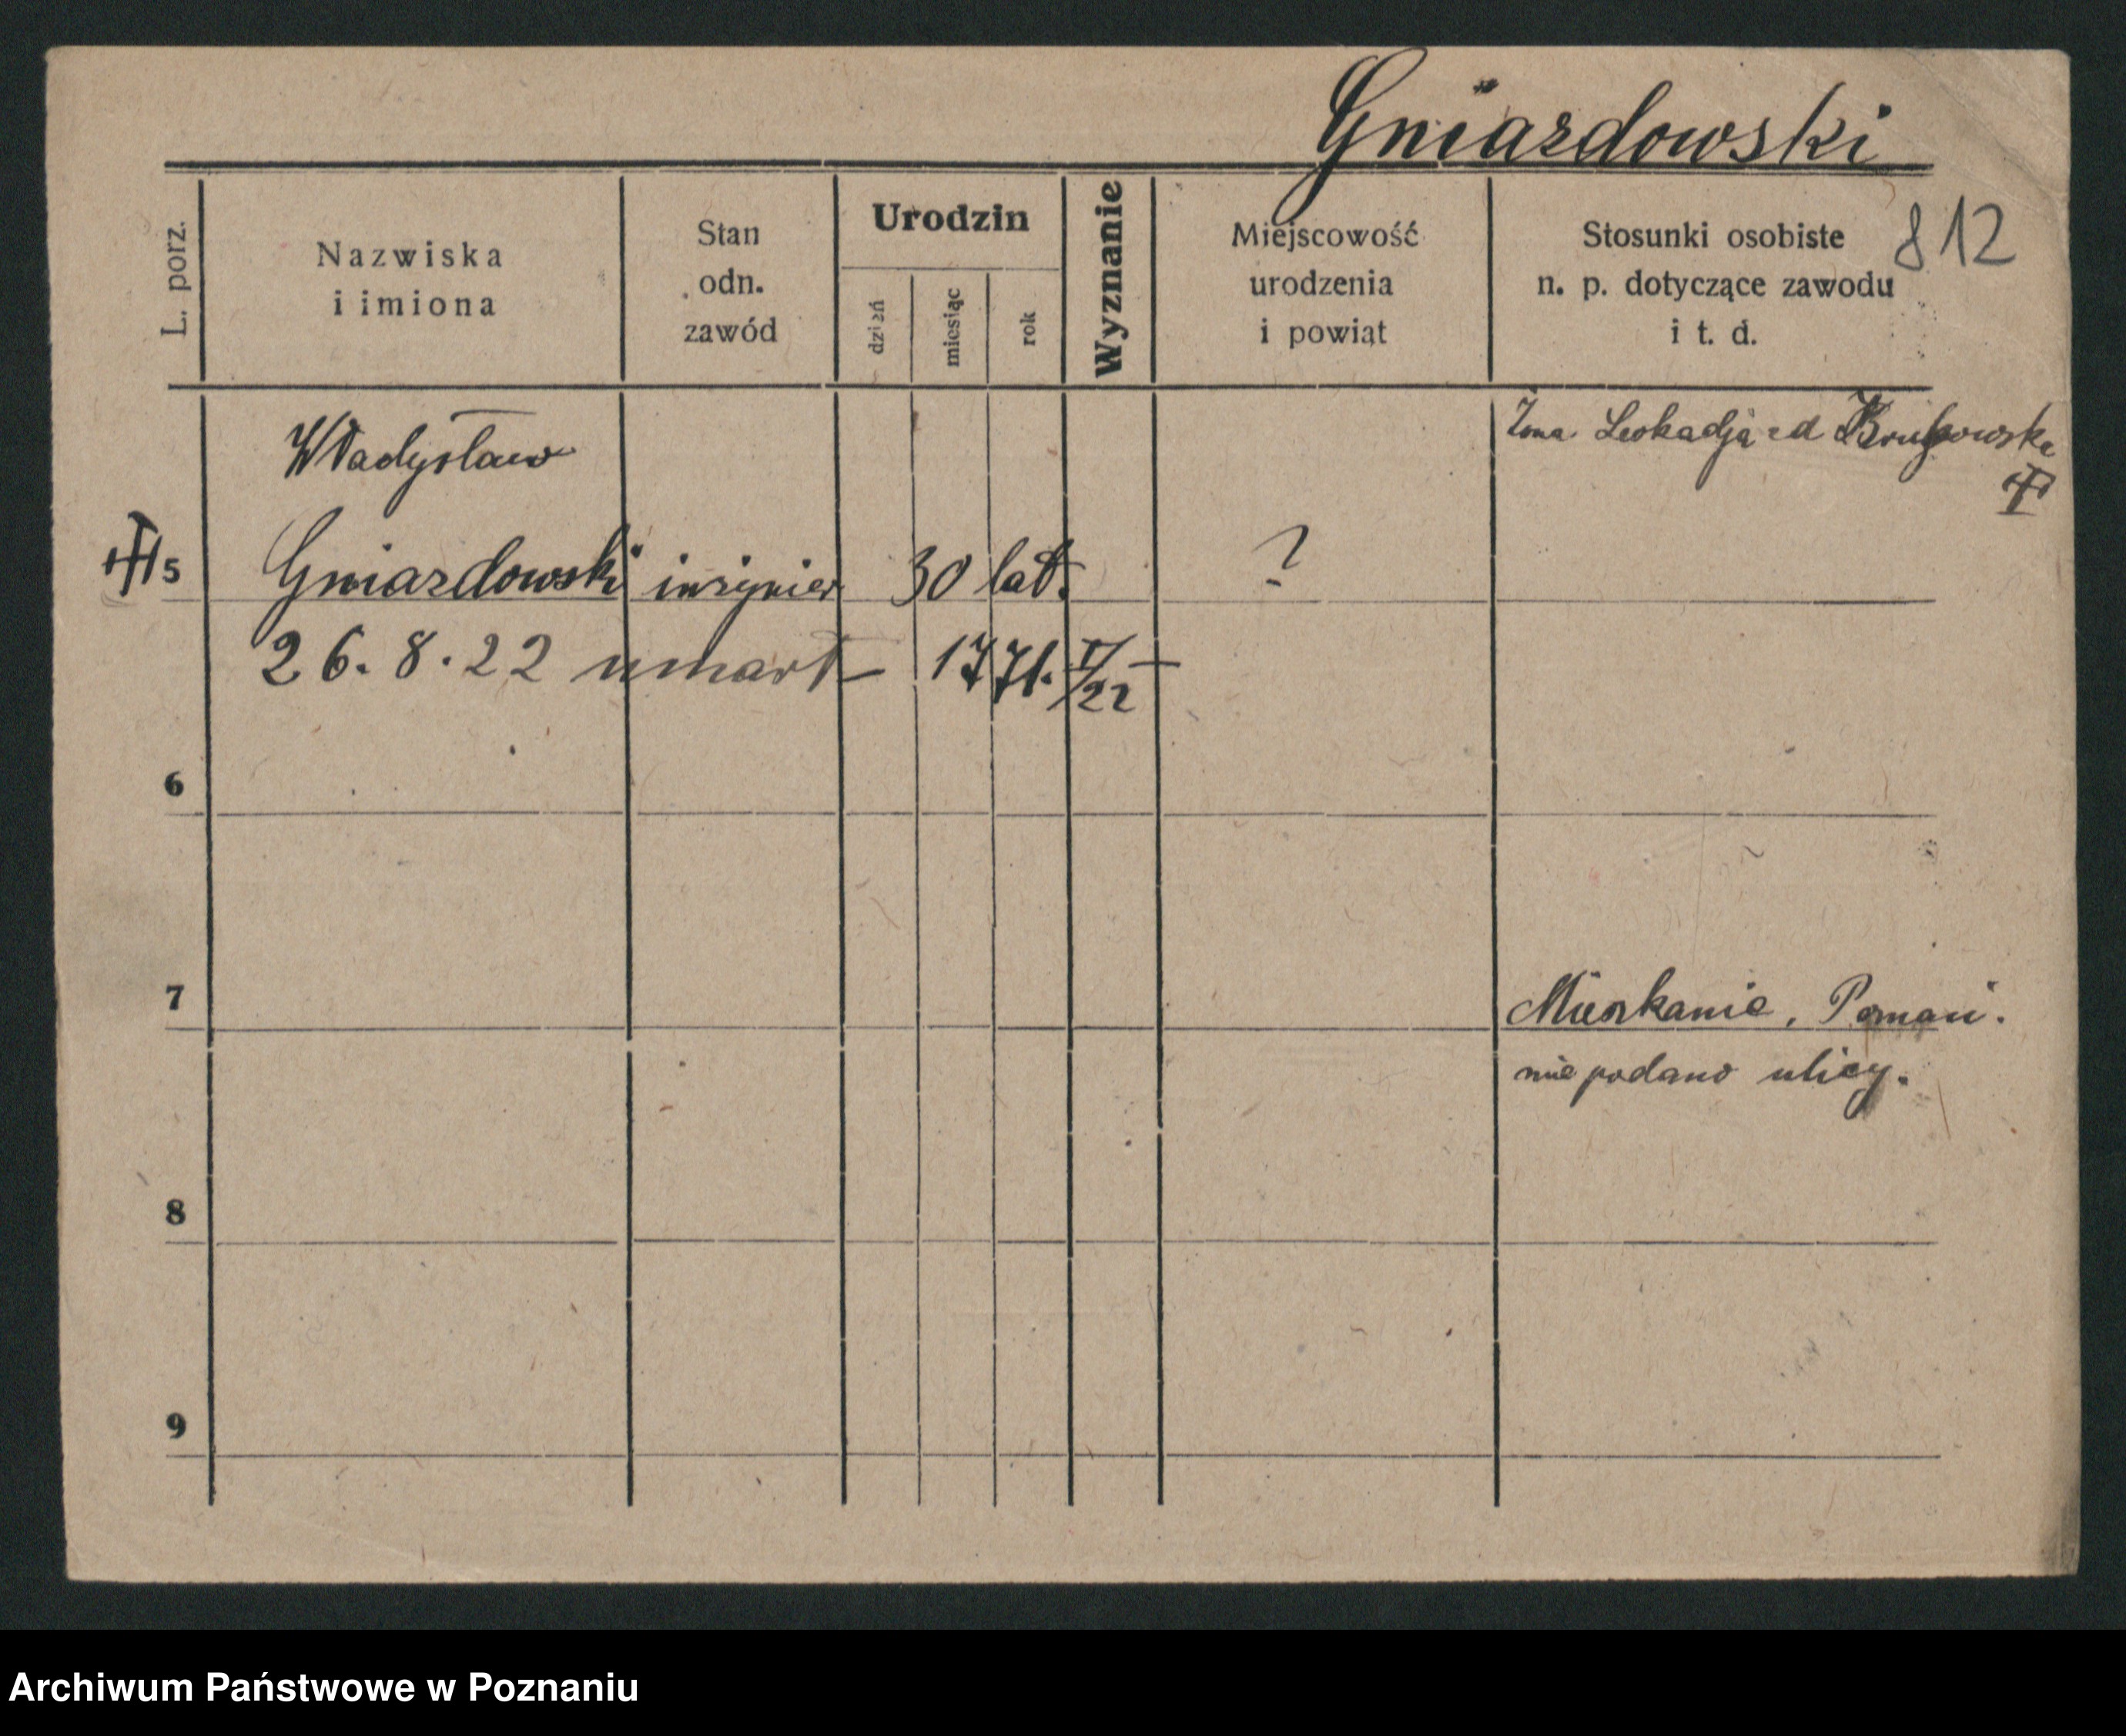 Gniazdowski
812
L. porz.
Nazwiska
i imiona
Stan
odn.
zawód
Urodzin
dzień
miesiąc
rok
Wyznanie
Miejscowość
urodzenia
i powiat
Stosunki osobiste
n. p. dotyczące zawodu
i t. d.
Żona Leokadja
Władysław
5 Gniazdowski inżynier 30 lat. ?
26.8.22 umarł 1771. I/22
6
7
Mieszkanie, Poznań.
nie podano ulicy.
8
9
Archiwum Państwowe w Poznaniu